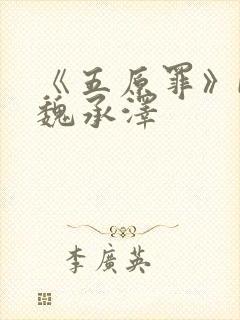 《五原罪》
魏承澤
李廣英